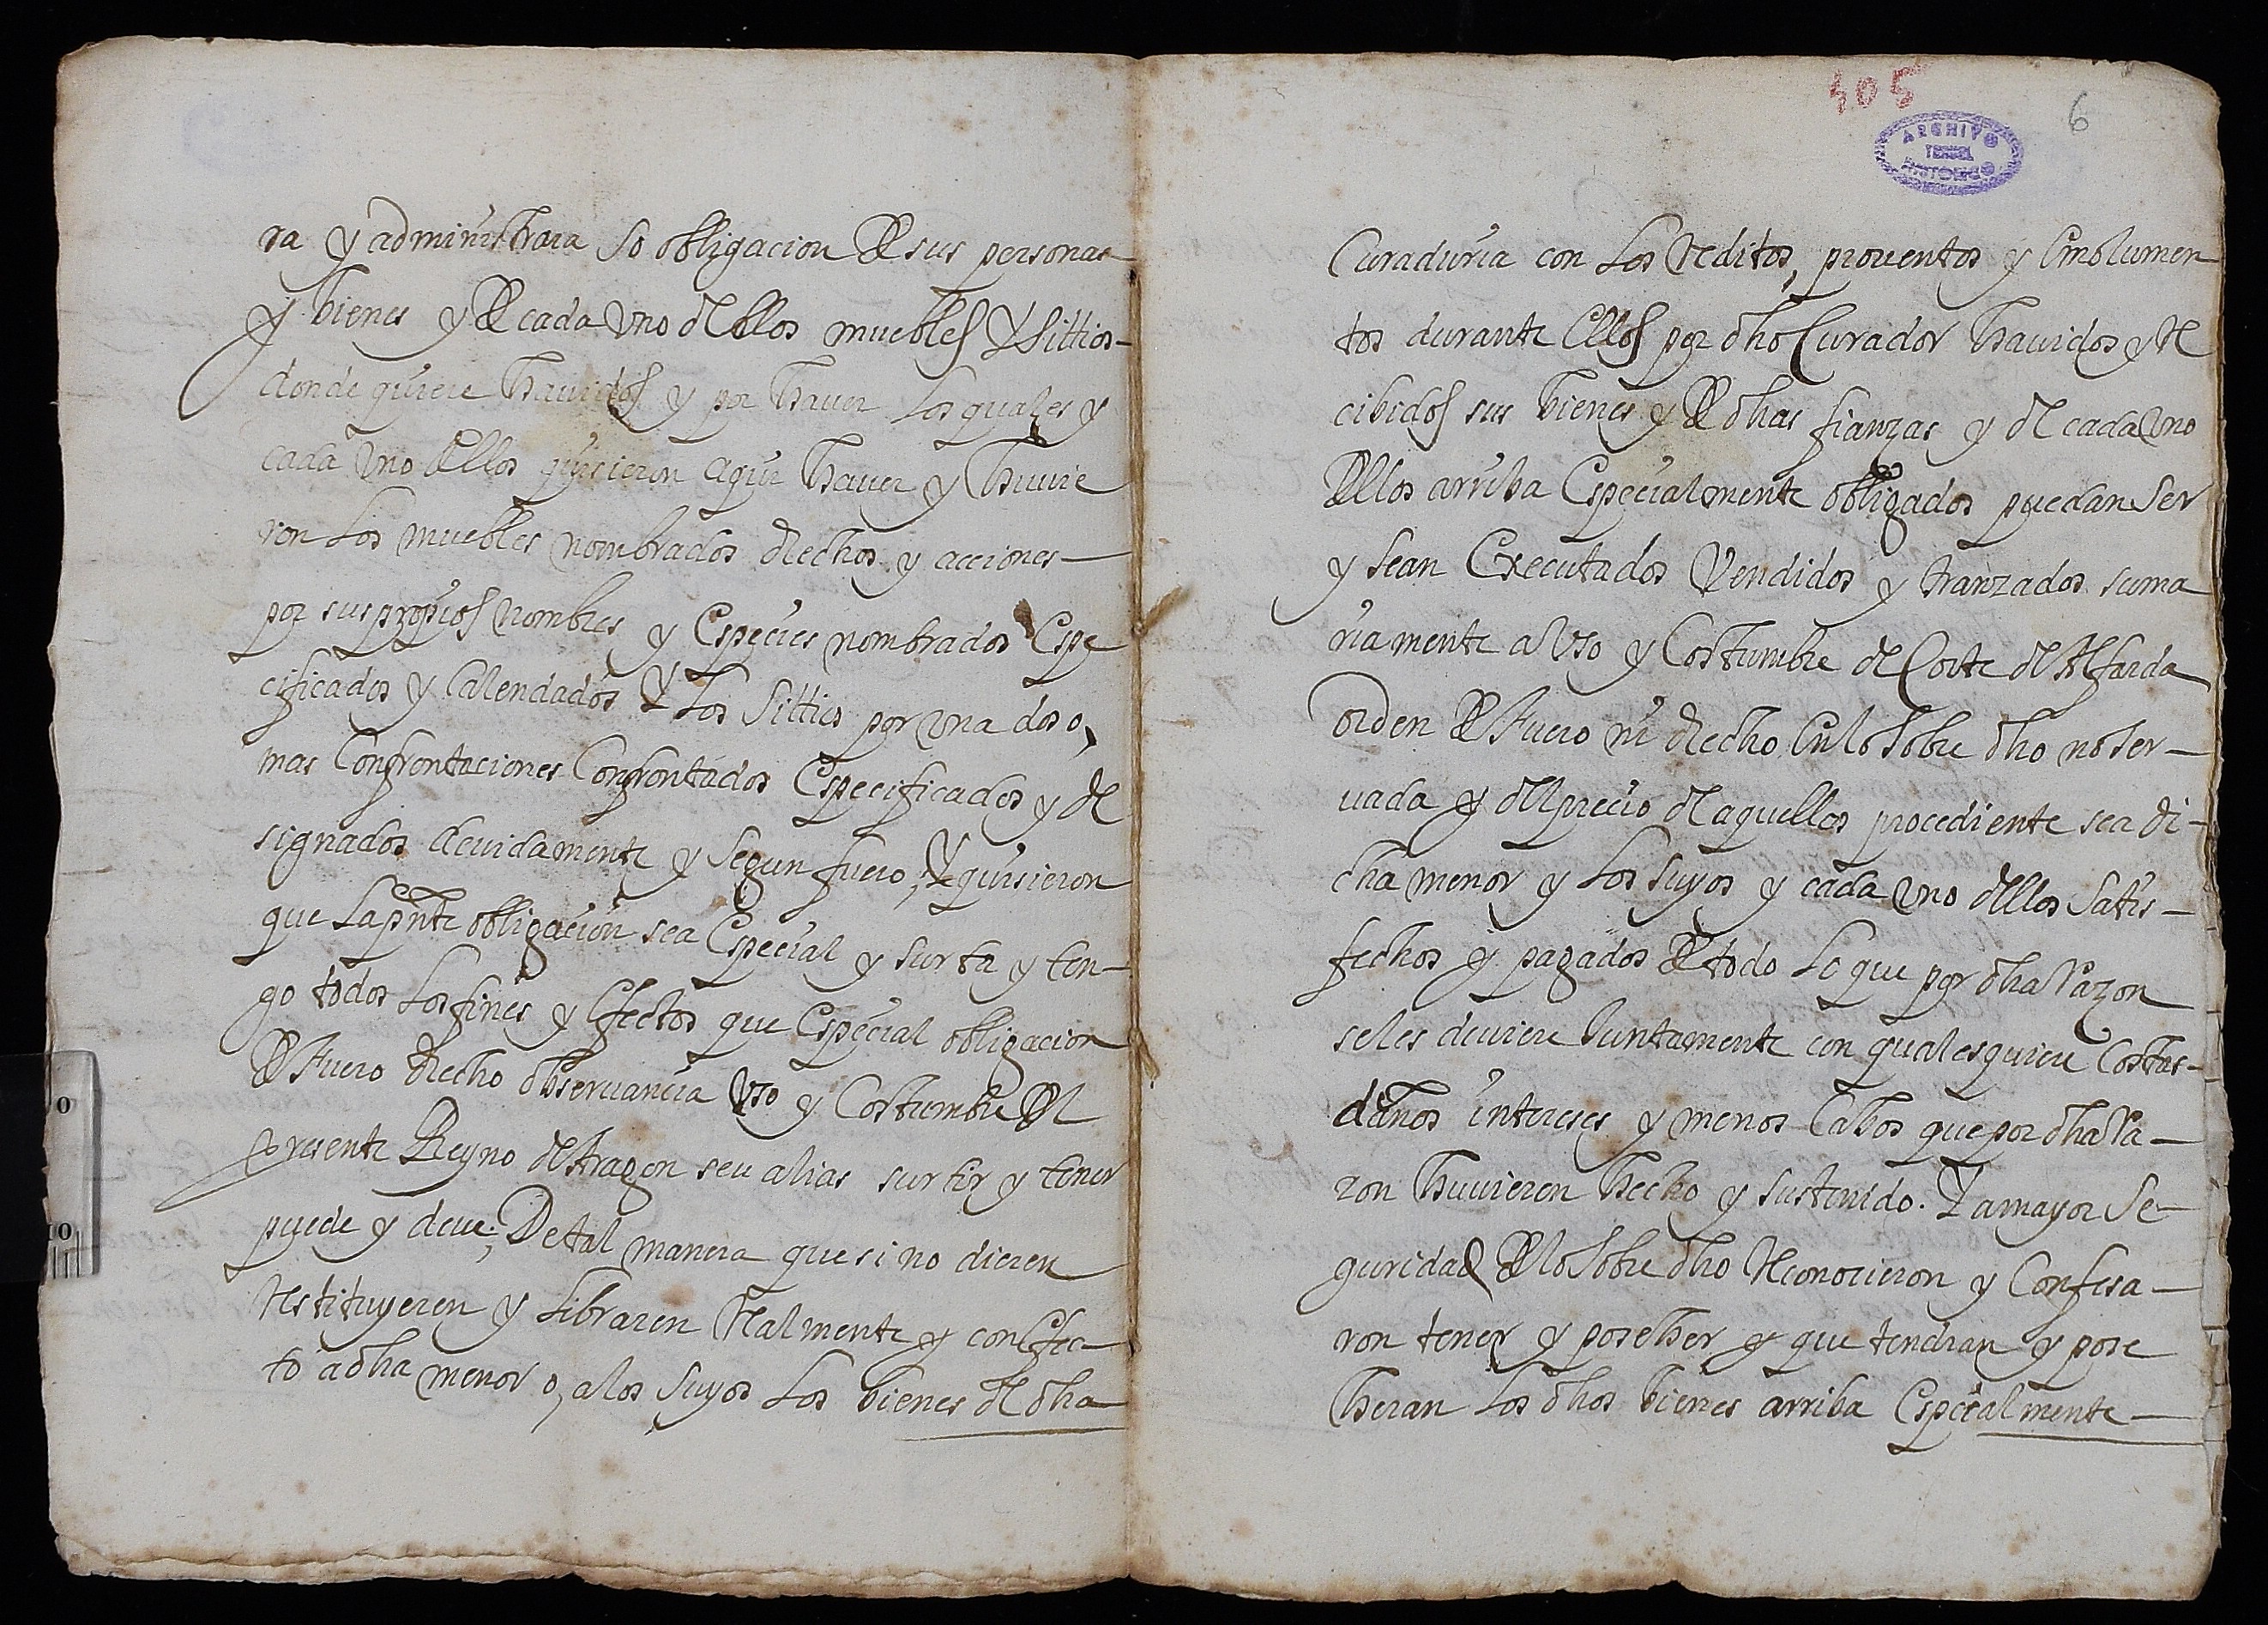 ra y administrara so obligacion de sus personas
y bienes y de cada uno dellos muebles y sittios
donde quiere hauidos y por hauer los quales y
cada uno dellos quisieron aqui hauer y huuie
ron los muebles nombrados drechos y acciones
por sus propios nombres y especies nombrados espe
cificados y calendados y los sittios por una dos o,
mas confrontaciones confrontados especificados y de
signados deuidamente y segun fuero; y quisieron
que la pnte obligacion sea especial y surta y ten
go todos los fines y efectos que especial obligacion
de fuero drecho obseruancia uso y costumbre del
presente Reyno de Aragon seu alias surtir y tener
puede y deue; De tal manera que si no dieren
restituyeren y libraren realmente y con efec
to a dha menor o, a los suyos los bienes de dha
405
6
ARCHIVO
TERUEL
HISTORICO
Curaduria con los reditos, prouentos y emolumen
tos durante ellos por dho Curador hauidos y re
cibidos sus bienes y de dhas fianzas y de cada uno
dellos arriba especialmente obligados puedan ser
y sean executados vendidos y tranzados suma
riamente a uso y costumbre de Corte de Alfarda
orden de fuero ni drecho en lo sobre dho no ser
uada y del precio de aquellos procediente sea di
cha menor y los suyos y cada uno dellos satis
fechos y pagados de todo lo que por dha razon
seles deuiere Juntamente con qualesquiere costas
daños intereses y menos cabos que por dha ra
zon huuieren hecho y sustenido. Y a mayor se
guridad de lo sobre dho reconocieron y confesa
ron tener y poseher y que tendran y pose
heran los dhos bienes arriba especialmente